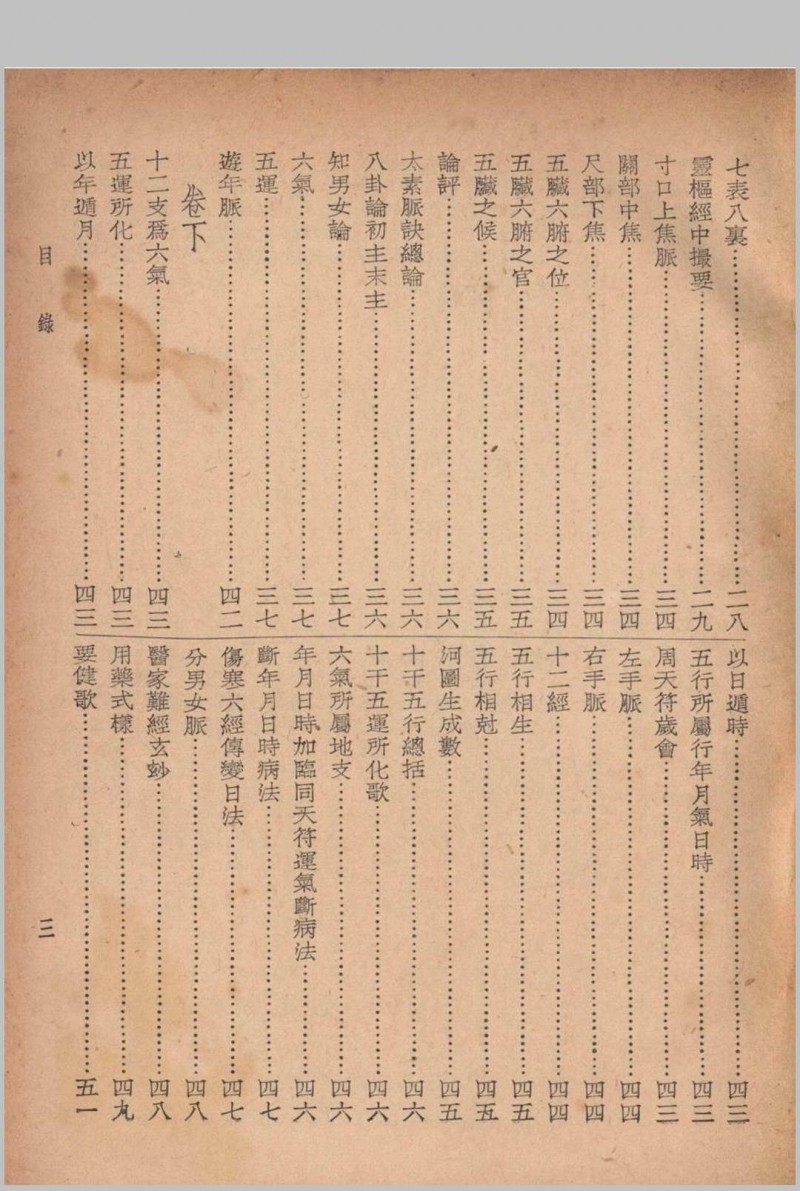 七表八裏⋯⋯二八
靈樞經中撮要⋯⋯二九
寸口上焦脈⋯⋯三四
關部中焦⋯⋯三四
尺部下焦⋯⋯三四
五臟六腑之位⋯⋯三四
五臟六腑之官⋯⋯三五
五臟之候⋯⋯三五
論評⋯⋯三六
太素脈訣總論⋯⋯三六
八卦論初主末主⋯⋯三六
知男女論⋯⋯三七
六氣⋯⋯三七
五運⋯⋯三七
遊年脈⋯⋯四二
卷下
十二支爲六氣⋯⋯四三
五運所化⋯⋯四三
以年遁月⋯⋯四三
以日遁時⋯⋯四三
五行所屬行年月氣日時⋯⋯四三
周天符歲會⋯⋯四三
左手脈⋯⋯四四
右手脈⋯⋯四四
十二經⋯⋯四四
五行相生⋯⋯四五
五行相尅⋯⋯四五
河圖生成數⋯⋯四五
十干五行總括⋯⋯四六
十干五運所化歌⋯⋯四六
六氣所屬地支⋯⋯四六
年月日時加臨同天符運氣斷病法⋯⋯四六
斷年月日時病法⋯⋯四七
傷寒六經傳變日法⋯⋯四七
分男女脈⋯⋯四八
醫家難經玄玅⋯⋯四八
用藥式樣⋯⋯四九
要健歌⋯⋯五一
目錄
三